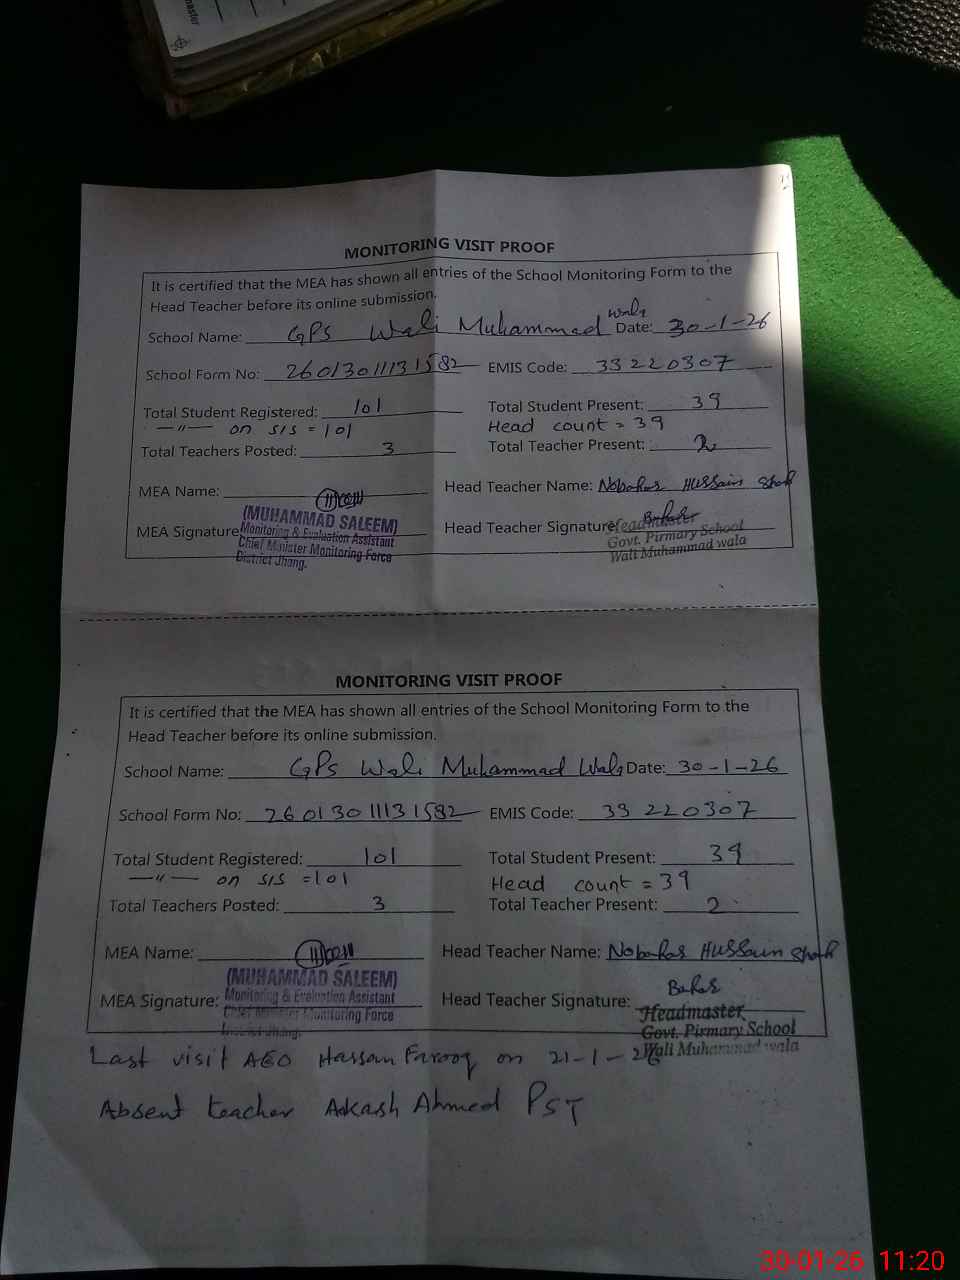 master
MONITORING VISIT PROOF
It is certified that the MEA has shown all entries of the School Monitoring Form to the
Head Teacher before its online submission.
School Name: GPS Wali Muhammad Wala Date: 30-1-26
School Form No: 26013011131582 EMIS Code: 33220307
Total Student Registered: 101 Total Student Present: 39
—〃— on SIS = 101 Head count = 39
Total Teachers Posted: 3 Total Teacher Present: 2
MEA Name: Head Teacher Name: Hussain Shah
(MUHAMMAD SALEEM)
MEA Signature Monitoring & Evaluation Assistant Head Teacher Signature Headmaster
Chief Minister Monitoring Force Govt. Pirmary School
District Jhang. Wali Muhammad wala
MONITORING VISIT PROOF
It is certified that the MEA has shown all entries of the School Monitoring Form to the
Head Teacher before its online submission.
School Name: GPS Wali Muhammad Wala Date: 30-1-26
School Form No: 26013011131582 EMIS Code: 33220307
Total Student Registered: 101 Total Student Present: 39
—〃— on SIS = 101 Head count = 39
Total Teachers Posted: 3 Total Teacher Present: 2
MEA Name: Head Teacher Name: Hussain Shah
(MUHAMMAD SALEEM)
MEA Signature: Monitoring & Evaluation Assistant Head Teacher Signature:
Chief Minister Monitoring Force Headmaster
District Jhang. Govt. Pirmary School
Wali Muhammad wala
Last visit AEO Hassan Farooq on 21-1-26
Absent teacher Aakash Ahmed PST
30-01-26 11:20